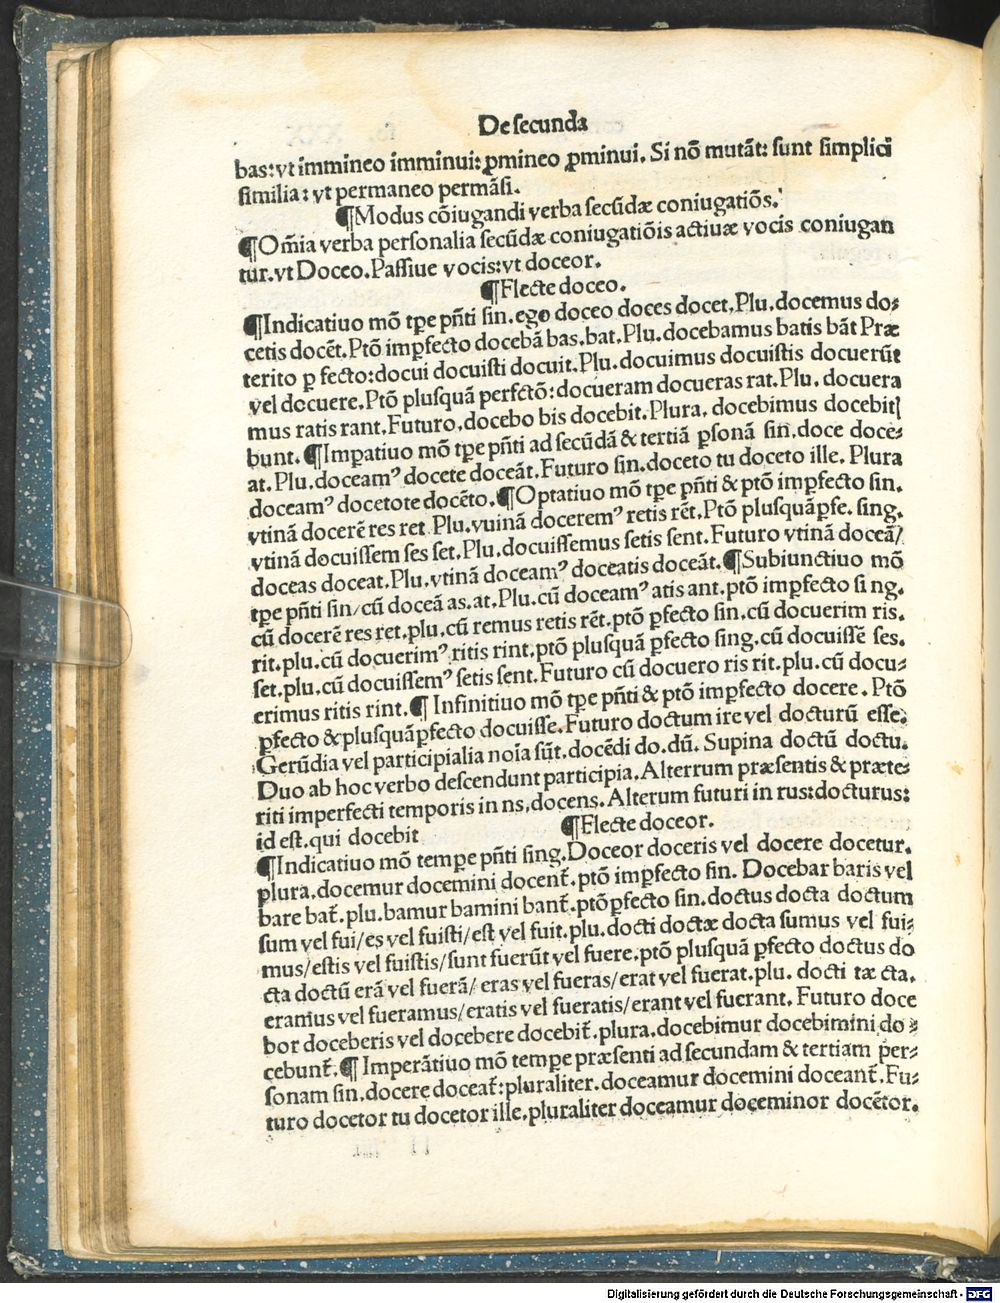 De secunda
bas: vt immineo imminui: ꝓmineo ꝓminui. Si nō mutāt: sunt simplici
similia: vt permaneo permāsi.
¶Modus cōiugandi verba secūdæ coniugatiōs.
¶Om̄ia verba personalia secūdæ coniugatiōis actiuæ vocis coniugan
tur. vt Doceo. Passiue vocis: vt doceor.
¶Flecte doceo.
¶Indicatiuo mō tꝑe pn̄ti sin. ego doceo doces docet. Plu. docemus do⸗
cetis docēt. Ptō imꝑfecto docebā bas. bat. Plu. docebamus batis bāt Præ
terito ꝑ fecto: docui docuisti docuit. Plu. docuimus docuistis docuerūt
vel docuere. Ptō plusquā perfctō: docueram docueras rat. Plu. docuera
mus ratis rant. Futuro. docebo bis docebit. Plura. docebimus docebit
bunt. ¶Imꝑatiuo mō tꝑe pn̄ti ad secūdā & tertiā ꝑsonā sin̄. doce doce⸗
at. Plu. doceamꝰ docete doceāt. Futuro sin. doceto tu doceto ille. Plura
doceamꝰ docetote docēto. ¶Optatiuo mō tꝑe pn̄ti & ptō imꝑfecto sin.
vtinā docerē res ret Plu. vuinā doceremꝰ retis rēt. Ptō plusquāꝑfe. sing.
vtinā docuissem ses set. Plu. docuissemus setis sent. Futuro vtinā doceā/
doceas doceat. Plu. vtinā doceamꝰ doceatis doceāt. ¶Subiunctiuo mō
tꝑe pn̄ti sin/ cū doceā as. at. Plu. cū doceamꝰ atis ant. ptō imꝑfecto si ng.
cū docerē res ret. plu. cū remus retis rēt. ptō ꝑfecto sin. cū docuerim ris.
rit. plu. cū docuerimꝰ ritis rint. ptō plusquā ꝑfecto sing. cū docuissē ses.
set. plu. cū docuissemꝰ setis sent. Futuro cū docuero ris rit. plu. cū docu⸗
erimus ritis rint. ¶ Infinitiuo mō tꝑe pn̄ti & ptō imꝑfecto docere. Ptō
ꝑfecto & plusquāꝑfecto docuisse. Futuro doctum ire vel docturū esse.
Gerūdia vel participialia noīa sūt. docēdi do. dū. Supina doctū doctu.
Duo ab hoc verbo descendunt participia. Alterrum præsentis & præte⸗
riti imperfecti temporis in ns. docens. Alterum futuri in rus: docturus:
id est. qui docebit ¶Flecte doceor.
¶Indicatiuo mō tempe pn̄ti sing. Doceor doceris vel docere docetur.
plura. docemur docemini docent̄. ptō imꝑfecto sin. Docebar baris vel
bare bat̄. plu. bamur bamini bant̄. ptō ꝑfecto sin. doctus docta doctum
sum vel fui/ es vel fuisti/ est vel fuit. plu. docti doctæ docta sumus vel fui⸗
mus/ estis vel fuistis/ sunt fuerūt vel fuere. ptō plusquā ꝑfecto doctus do
cta doctū erā vel fuerā/ eras vel fueras/ erat vel fuerat. plu. docti tæ cta.
eramus vel fueramus/ eratis vel fueratis/ erant vel fuerant. Futuro doce
bor doceberis vel docebere docebit̄. plura. docebimur docebimini do⸗
cebunt̄. ¶ Imperātiuo mō tempe præsenti ad secundam & tertiam per⸗
sonam sin. docere doceat̄: pluraliter. doceamur docemini doceant̄. Fu⸗
turo docetor tu docetor ille. pluraliter doceamur doceminor docētor.
Digitalisierung gefördert durch die Deutsche Forschungsgemeinschaft - DFG